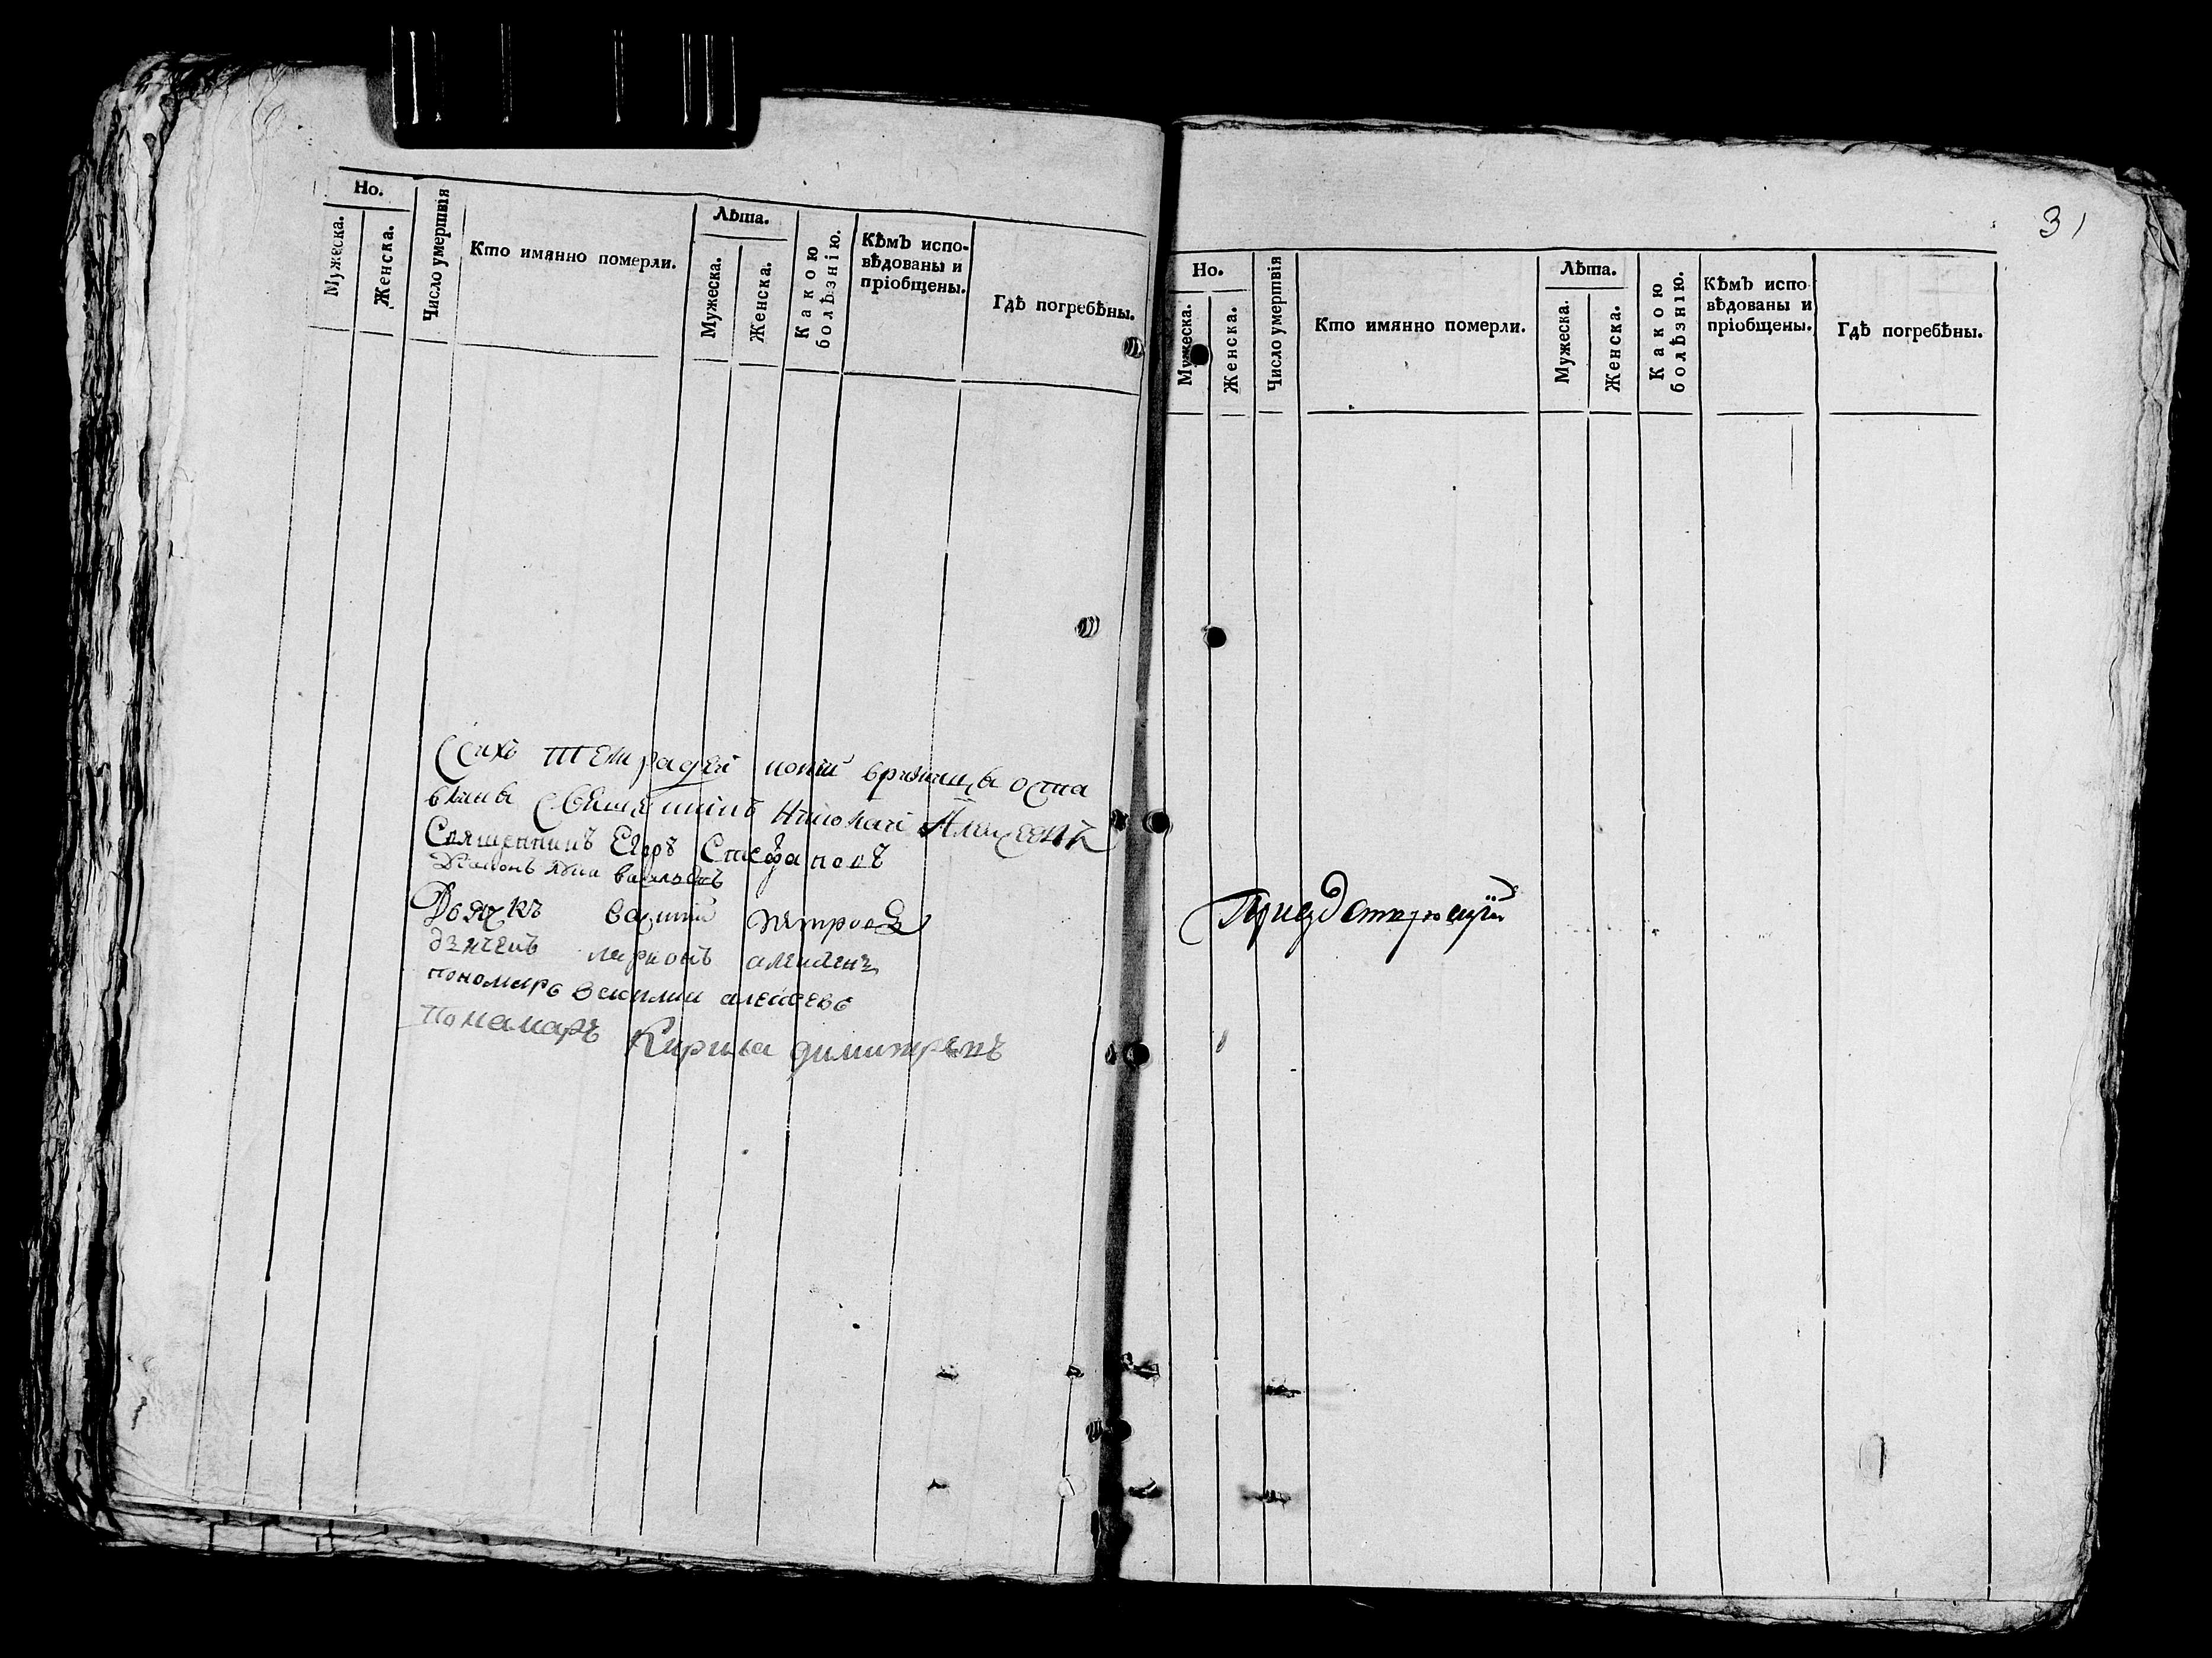 Но.
Мужеска.
Женска.
Число умертвія
Кто имянно померли.
Лѣта.
Мужеска.
Женска.
Какою
болѣзнію.
Кѣмъ испо-
вѣдованы и
пріобщены.
Гдѣ погребѣны.
Ссихъ тетрадей копіи вцрквы оста
влены Священникъ Николай Алексеевъ
Священникъ Егоръ Стефановъ
Диаконъ
Дьячкъ Василий Петровъ
дьячекъ ларионъ
пономарь Василии алексеевъ
Пономаръ Кирила димитревъ
31
Но.
Мужеска.
Женска.
Число умертвія
Кто имянно померли.
Лѣта.
Мужеска.
Женска.
Какою
болѣзнію.
Кѣмъ испо
вѣдованы и
пріобщены.
Гдѣ погребѣны.